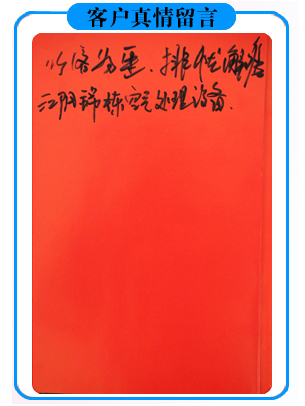 客户真情留言
以客为重、排忧解难
江门瑞栋空气处理设备.